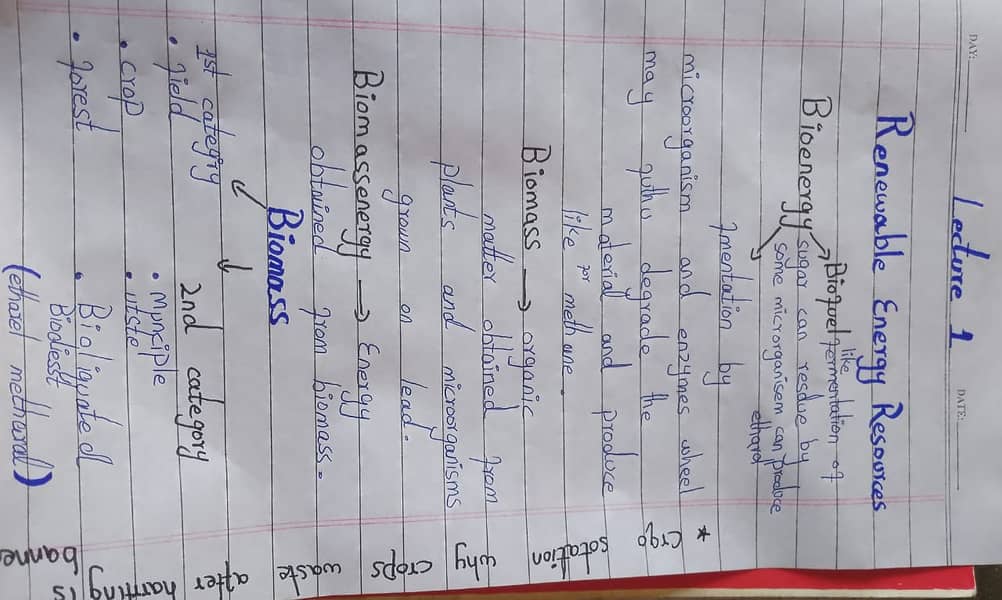 DAY:
DATE:
Lecture 1
Renewable Energy Resources
Bioenergy
Biofuel like
fermentation of
sugar can resdue by
some microrganisem can produce
ethanol
fmentation by
microorganism and enzymes wheel
may degrade the
material and produce
like methane.
Biomass → organic
matter obtained from
plants and microorganisms
groun on lead.
Biomassenergy → Energy
obtained from biomass.
Biomass
1st categriy
2nd category
• field
• crop
• forest
• Munciple
• Bioliquated
Biodiesl
(ethanol methanal)
* crgo
sotation
why
crops
waste
after
harrting is
banne